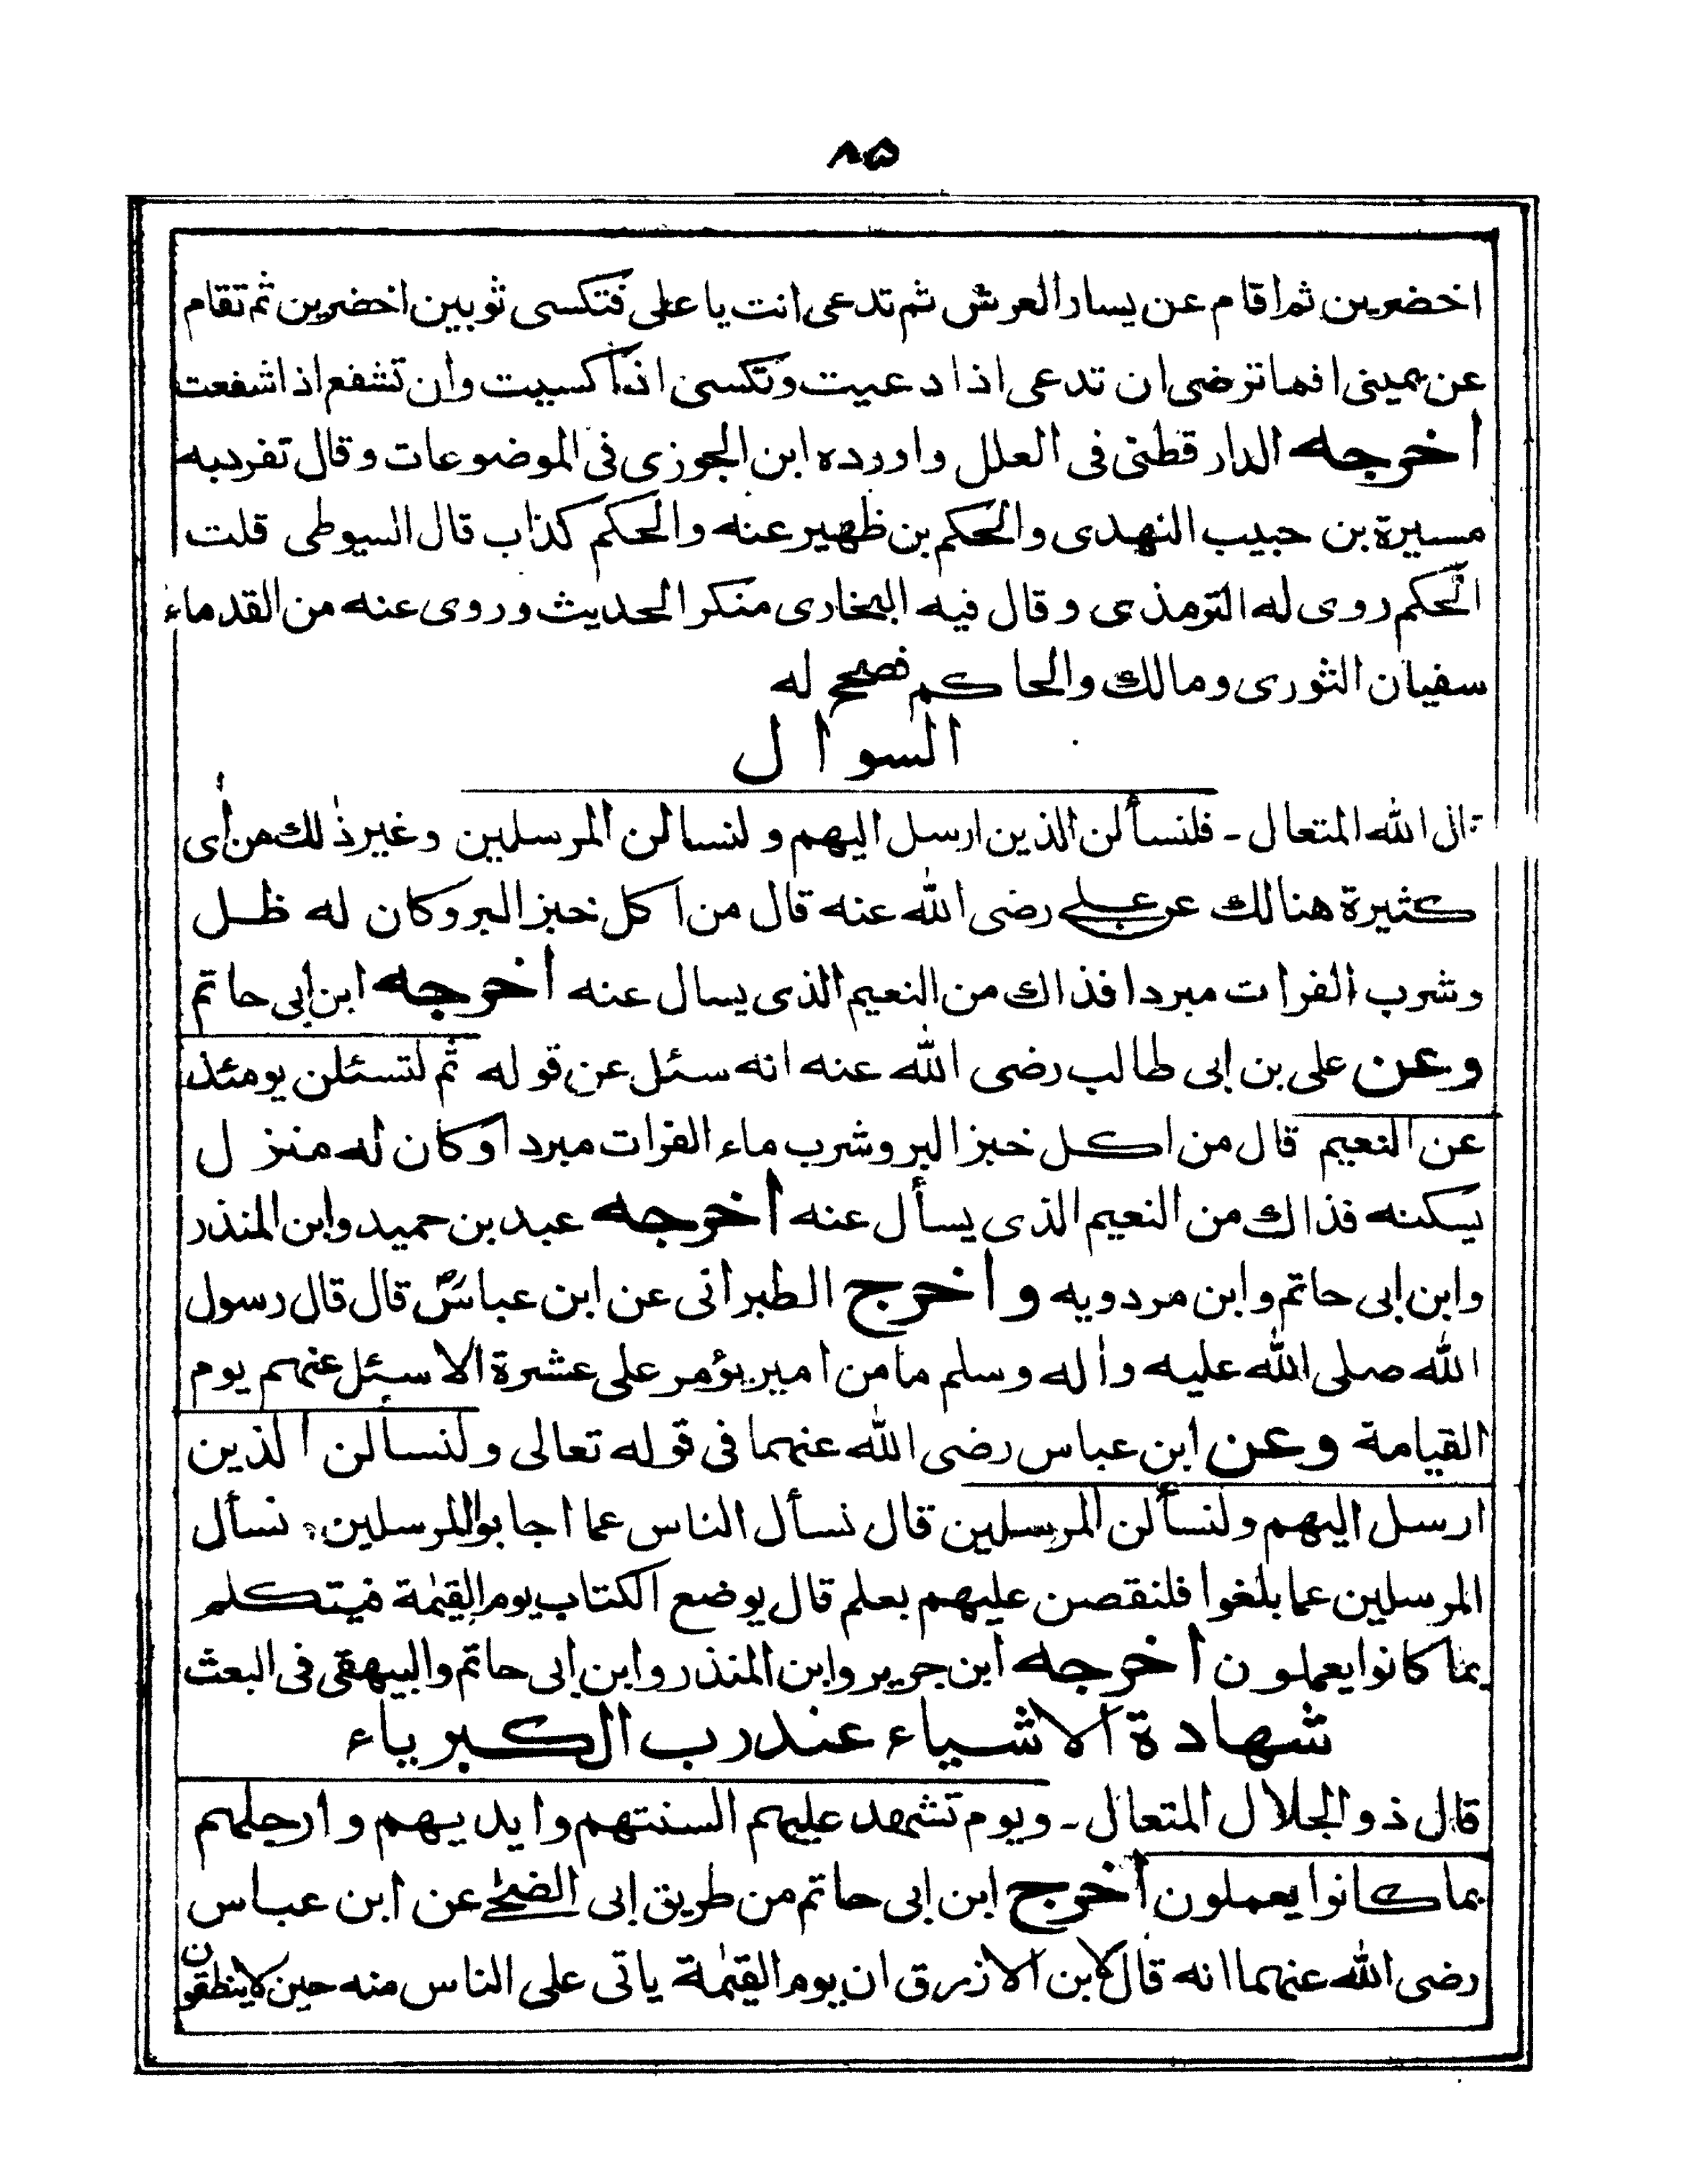 ۸۵
اخضرين ثم اقام عن يسار العرش ثم تدعى انت يا على فتكسى ثوبين اخضرين ثم تقام
عن يمينى افما ترضى ان تدعى اذا دعيت وتكسى اذا كسيت وان تشفع اذا شفعت
أخرجه الدار قطنى فى العلل واورده ابن الجوزى فى الموضوعات وقال تفرد به
مسيرة بن حبيب النهدى والحكم بن ظهير عنه والحكم كذاب قال السيوطى قلت
الحكم روى له الترمذى وقال فيه البخارى منكر الحديث وروى عنه من القدماء
سفيان الثورى ومالك والحاكم فصحح له
السوال
قال الله المتعال - فلنسألن الذين ارسل اليهم ولنسالن المرسلين وغير ذٰلك من أى
كثيرة هنالك عن على رضى الله عنه قال من اكل خبز البر وكان له ظل
وشرب الفرات مبردا فذاك من النعيم الذى يسال عنه أخرجه ابن ابى حاتم
وعن على بن ابى طالب رضى الله عنه انه سئل عن قوله ثم لتسئلن يومئذ
عن النعيم قال من اكل خبز البر وشرب ماء الفرات مبردا وكان له منزل
يسكنه فذاك من النعيم الذى يسأل عنه أخرجه عبد بن حميد وابن المنذر
وابن ابى حاتم وابن مردويه وأخرج الطبرانى عن ابن عباسؓ قال قال رسول
الله صلى الله عليه واٰله وسلم ما من امير يؤمر على عشرة الا سئل عنهم يوم
القيامة وعن ابن عباس رضى الله عنهما فى قوله تعالى ولنسألن الذين
ارسل اليهم ولنسألن المرسلين قال نسأل الناس عما اجابوا المرسلين، نسأل
المرسلين عما بلغوا فلنقصن عليهم بعلم قال يوضع الكتاب يوم القيٰمة فيتكلم
بما كانوا يعملون أخرجه ابن جرير وابن المنذر وابن ابى حاتم والبيهقى فى البعث
شهادة الاشياء عند رب الكبرياء
قال ذو الجلال المتعال - ويوم تشهد عليهم السنتهم وايديهم وارجلهم
بما كانوا يعملون أخرج ابن ابى حاتم من طريق ابى الضحٰى عن ابن عباس
رضى الله عنهما انه قال لابن الازرق ان يوم القيٰمة ياتى على الناس منه حين لا ينطقون